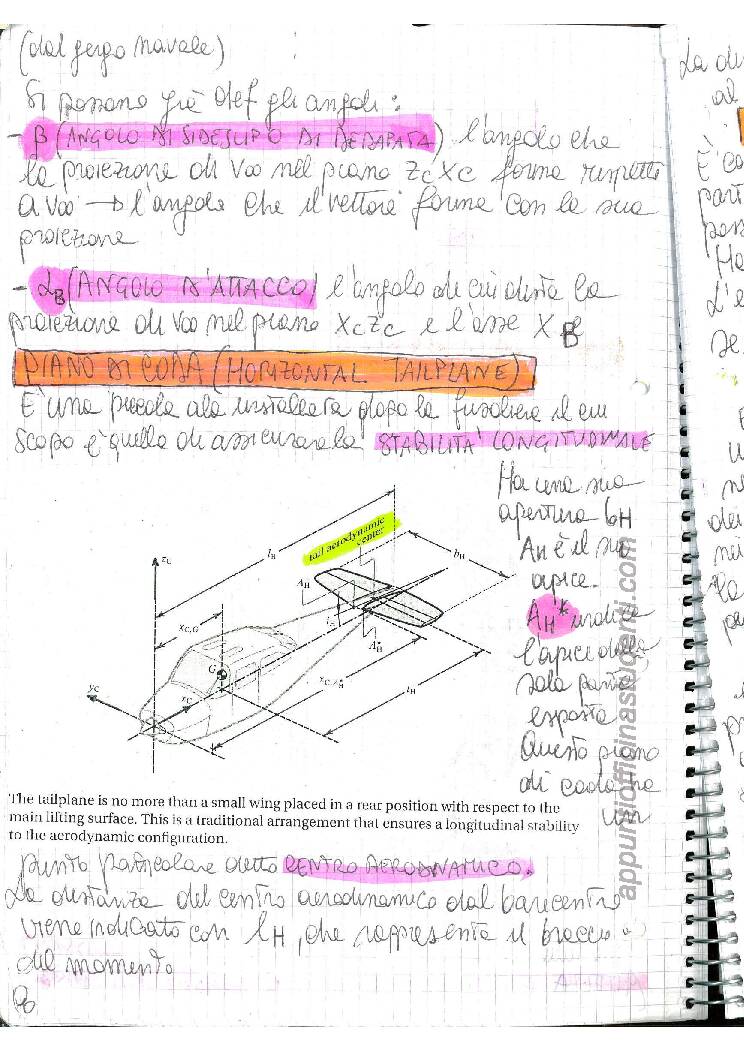 (dal gergo navale)
Si possono già def gli angoli:
- β (ANGOLO DI SIDESLIP O DI DERAPATA) l'angolo che
la proiezione di V∞ nel piano ZcXc forma rispetto
a V∞ → l'angolo che il vettore forma con la sua
proiezione
- αB (ANGOLO D'ATTACCO) l'angolo di cui dista la
proiezione di V∞ nel piano XcZc e l'asse XB
PIANO DI CODA (HORIZONTAL TAILPLANE)
E' una piccola ala installata dopo la fusoliera il cui
scopo è quello di assicurare la STABILITA' LONGITUDINALE
Ha una sua
apertura bH
AH è il suo
apice.
AH* indica
l'apice della
sola parte
esposta
Questo piano
di coda ha
un
tail aerodynamic
center
lH
bH
AH
iH
zC
xC,G
G
A*H
xC,A*H
lH
yC
xC
The tailplane is no more than a small wing placed in a rear position with respect to the
main lifting surface. This is a traditional arrangement that ensures a longitudinal stability
to the aerodynamic configuration.
punto particolare detto CENTRO AERODINAMICO.
La distanza del centro aerodinamico dal baricentro
viene indicato con lH, che rappresenta il braccio
del momento
appuntiofficinastudenti.com
La
al
E' co
part
Ha
L'e
se